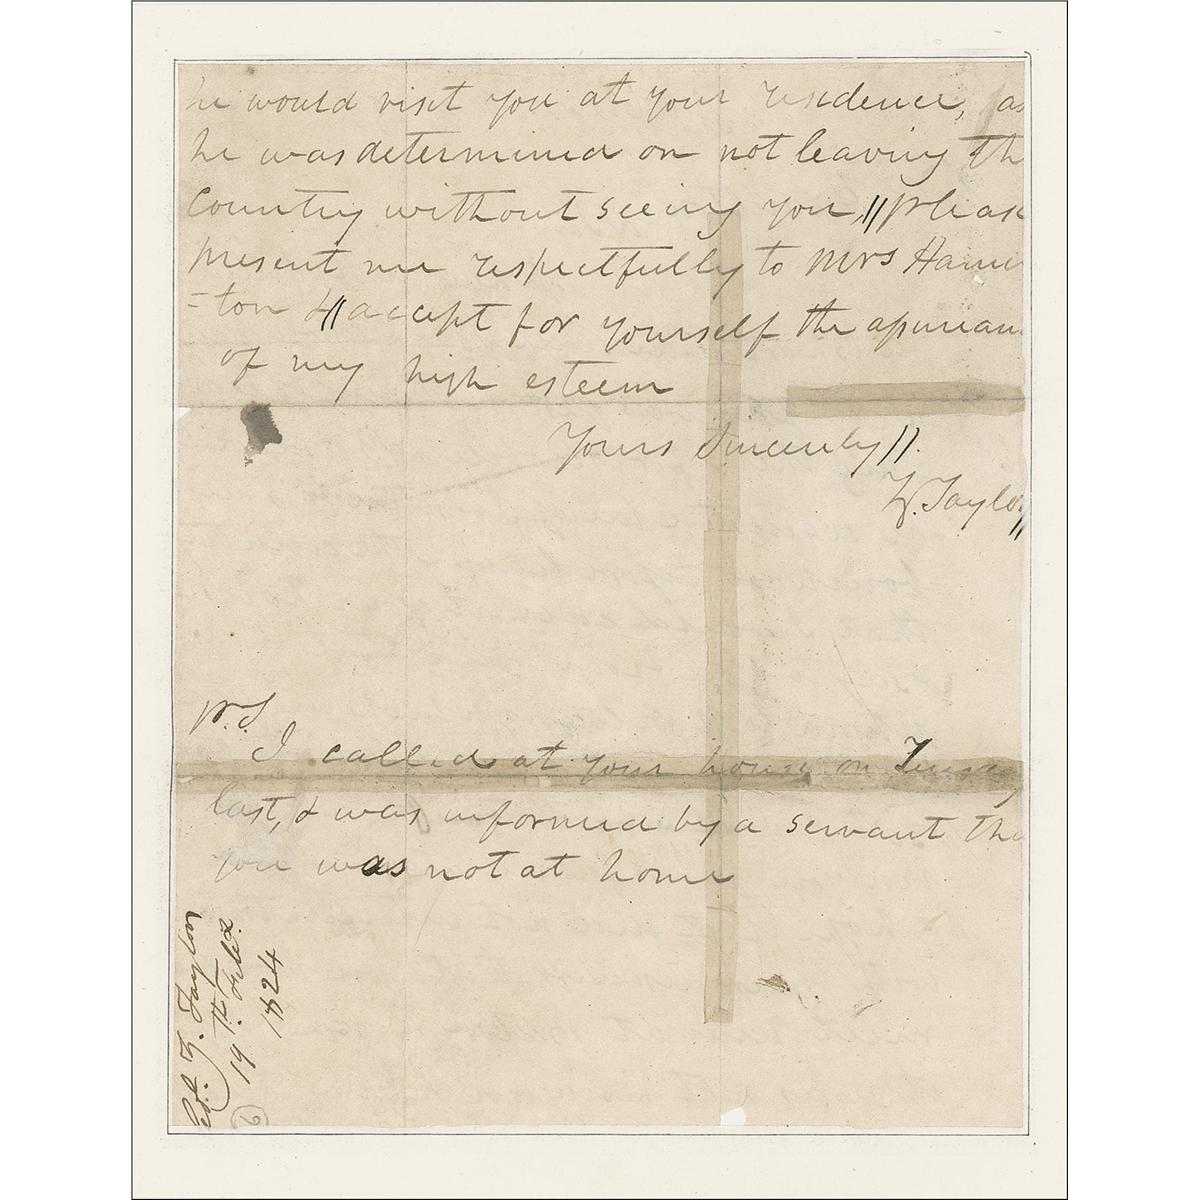 he would visit you at your residence, as
he was determined on not leaving th
Country without seeing you, // pleas
present me respectfully to Mrs Hamil
=ton & // accept for yourself the
of my high esteem
Yours Sincerely //.
Z. Taylor //
P.S.
I called at your house on
last, & was informed by a servant tha
you was not at home
Z. Taylor
19th Feb.
1824